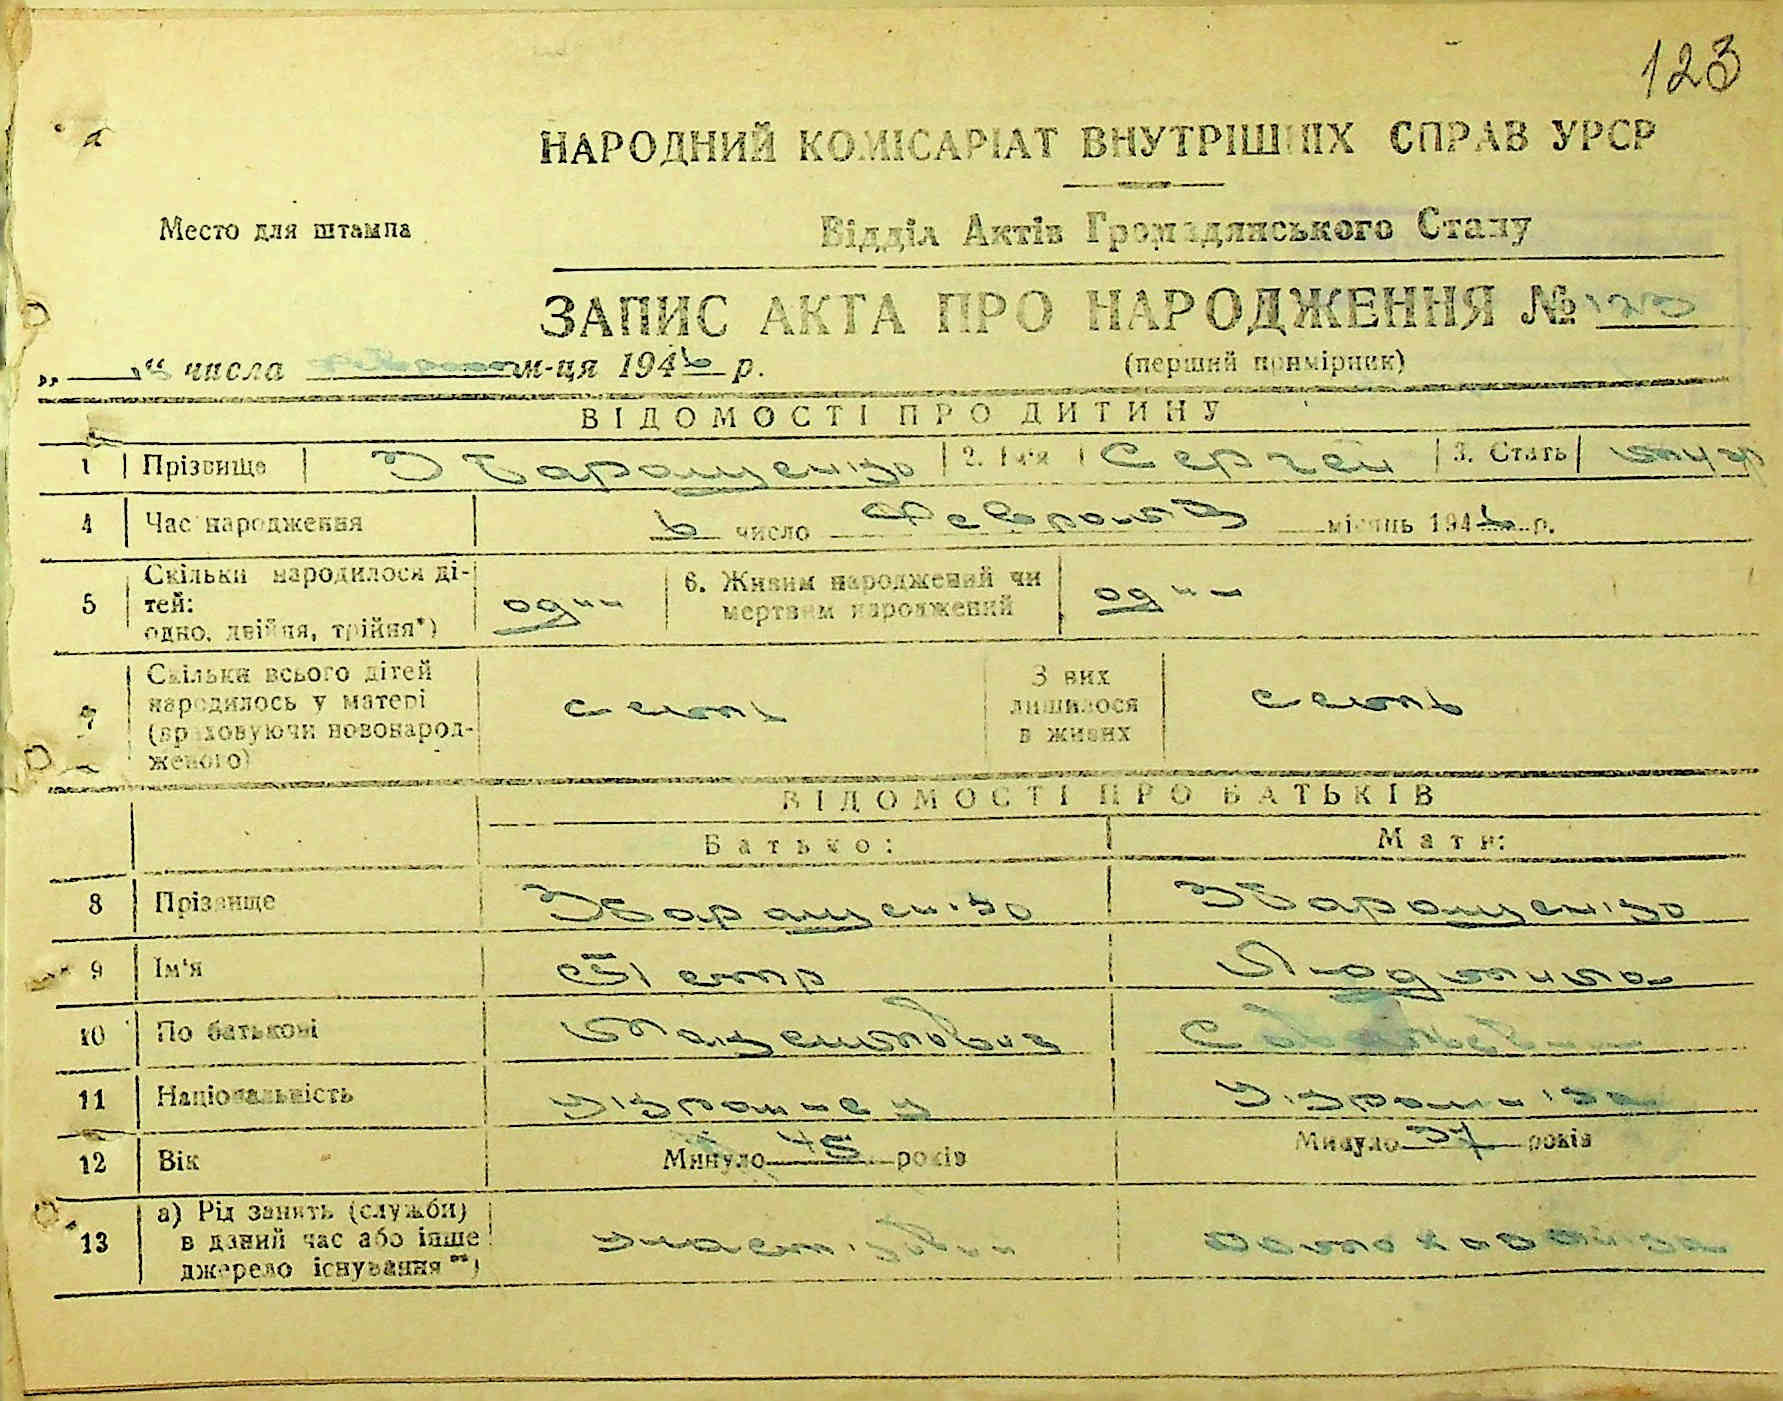 123
НАРОДНИЙ КОМІСАРІАТ ВНУТРІШНІХ СПРАВ УРСР
Место для штампа
Відділ Актів Громадянського Стану
ЗАПИС АКТА ПРО НАРОДЖЕННЯ № 123
„ “ числа м-ця 1946 р.
(перший примірник)
ВІДОМОСТІ ПРО ДИТИНУ
1 Прізвище Збаращенко 2. Ім'я Сергей 3. Стать муж
4 Час народження 6 число Февраля місяць 1946 р.
5 Скільки народилося ді-
тей:
одно, двійня, трійня*) один
6. Живим народжений чи
мертвим народжений один
7 Скільки всього дітей
народилось у матері
(враховуючи новонарод-
женого) семь
З них
лишилося
в живих семь
ВІДОМОСТІ ПРО БАТЬКІВ
Батько: Мати:
8 Прізвище Збаращенко Збаращенко
9 Ім'я Петр Людмила
10 По батькові
11 Національність украинец украинка
12 Вік Минуло 45 років Минуло 37 років
13 а) Рід занять (служби)
в даний час або інше
джерело існування**) домохозяйка